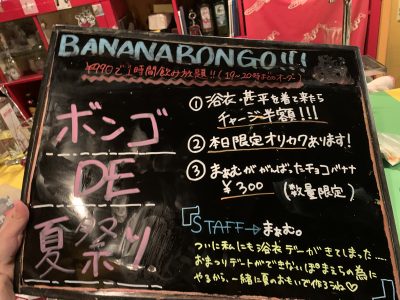 BANANABONGO!!!
¥990で1時間飲み放題!!(19~20時までのオーダー)
ボンゴ
DE
夏祭り
① 浴衣・甚平を着て来たら
チャージ半額!!!
② 本日限定オリカクあります!
③ まぁむががんばったチョコバナナ
¥300 (数量限定)
『STAFF→まぁむ。
ついに私にも浴衣デーがきてしまった.....
おまつりデートができないぽまえらの為に
やるから、一緒に夏のおもいで作ろうね♡』